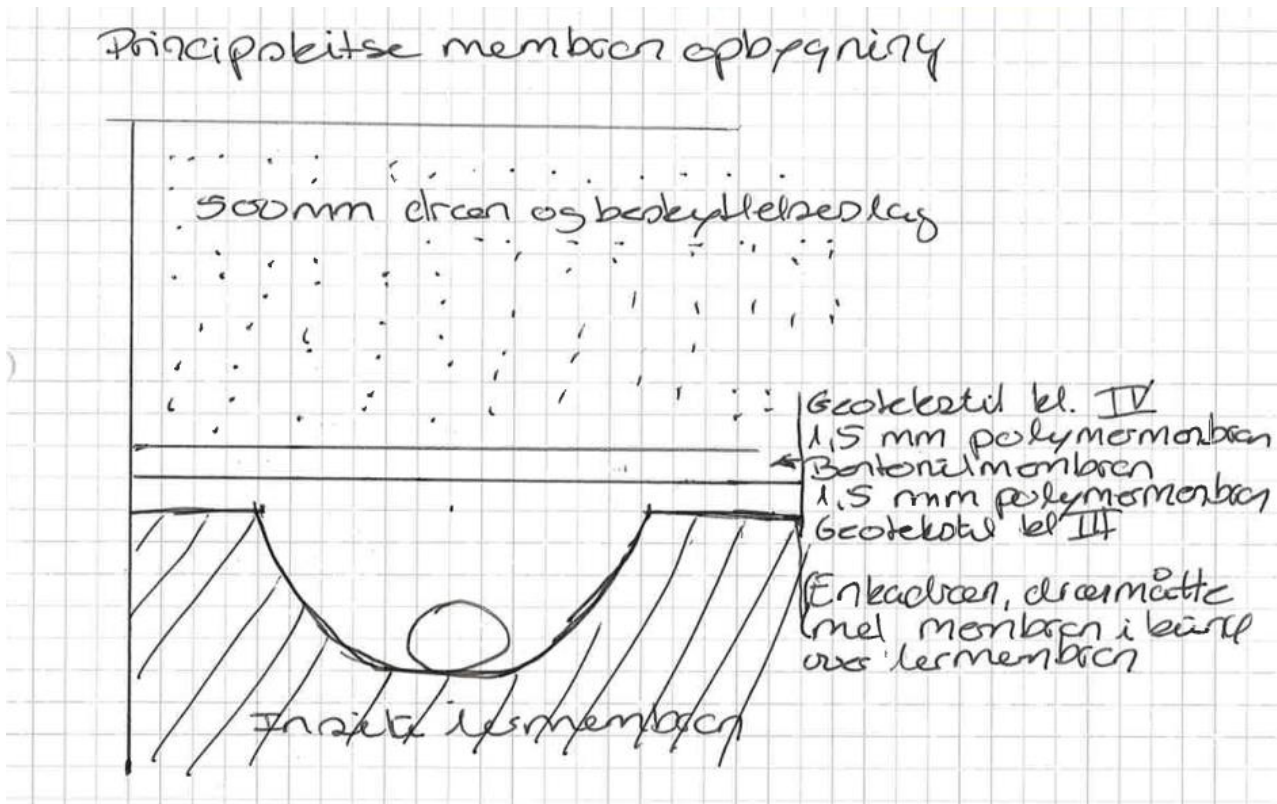 Principskitse membran opbygning
500mm dræn og beskyttelseslag
Geotekstil kl. IV
1,5 mm polymermembran
Bentonitmembran
1,5 mm polymermembran
Geotekstil kl III
Enkadræn, drænmåtte
med membran i bund
over lermembran
Insitu lermembran